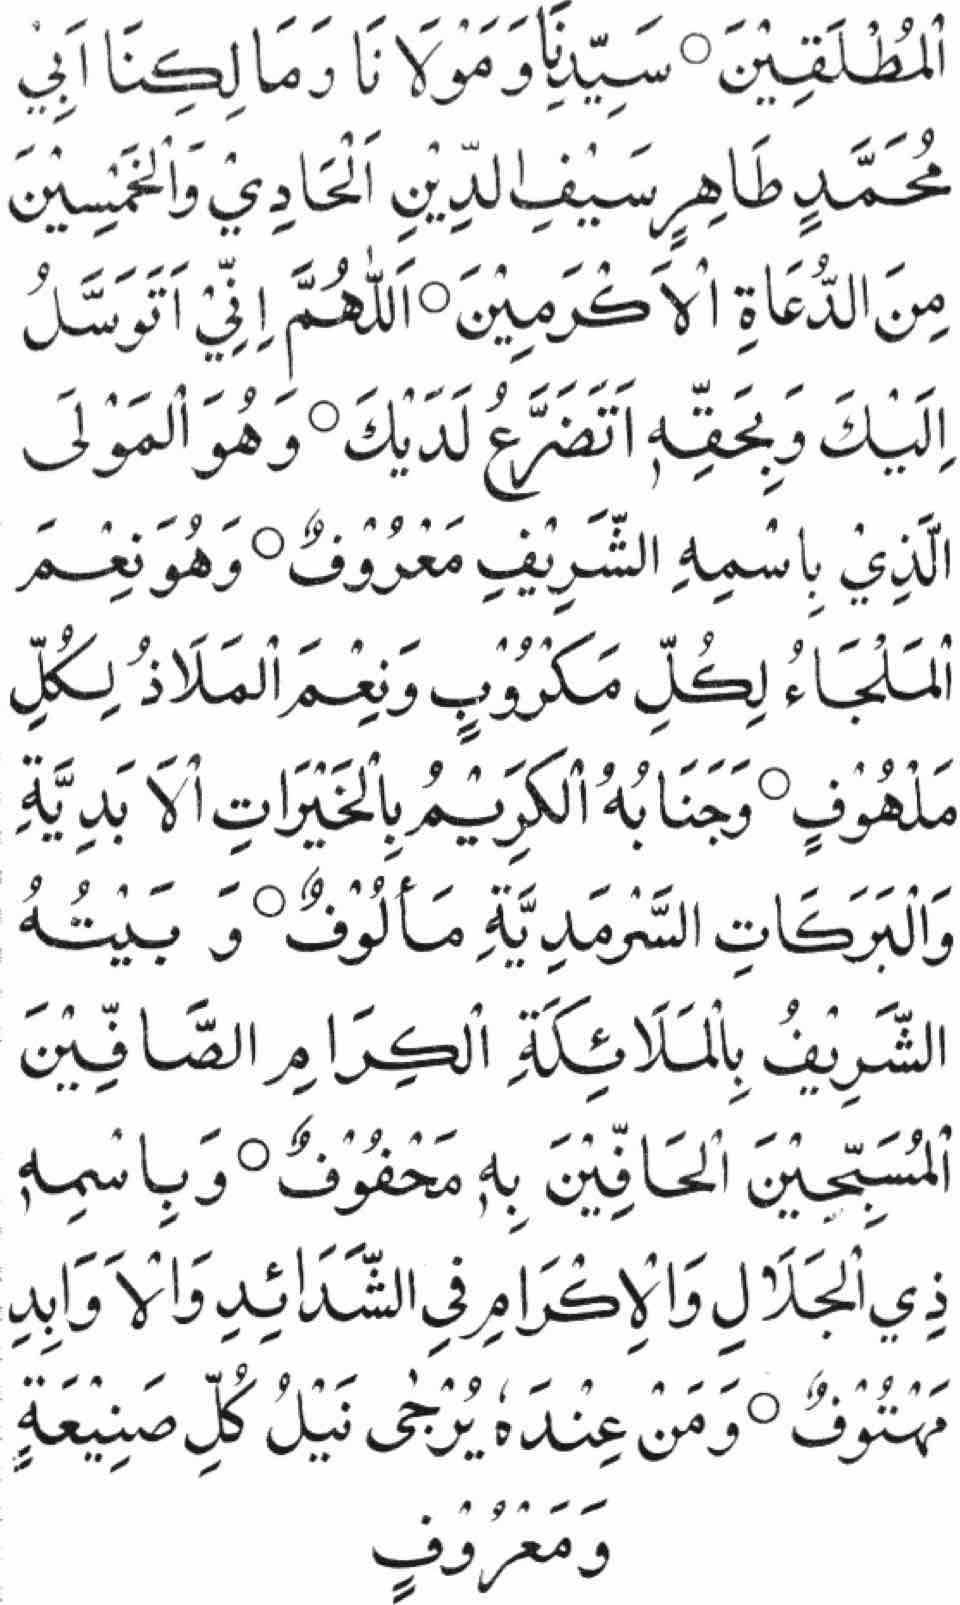 اَلْمُطْلَقِيْنَ ○ سَيِّدِنَا وَمَوْلَانَا وَمَالِكِنَا اَبِيْ
مُحَمَّدٍ طَاهِرٍ سَيْفِ الدِّيْنِ اَلْحَادِيْ وَالْخَمْسِيْنَ
مِنَ الدُّعَاةِ الْاَكْرَمِيْنَ ○ اَللّٰهُمَّ اِنِّيْ اَتَوَسَّلُ
اِلَيْكَ وَبِحَقِّهٖ اَتَضَرَّعُ لَدَيْكَ ○ وَهُوَ الْمَوْلَى
الَّذِيْ بِاسْمِهِ الشَّرِيْفِ مَعْرُوْفٌ ○ وَهُوَ نِعْمَ
الْمَلْجَاءُ لِكُلِّ مَكْرُوْبٍ وَنِعْمَ الْمَلَاذُ لِكُلِّ
مَلْهُوْفٍ ○ وَجَنَابُهُ الْكَرِيْمُ بِالْخَيْرَاتِ الْاَبَدِيَّةِ
وَالْبَرَكَاتِ السَّرْمَدِيَّةِ مَأْلُوْفٌ ○ وَبَيْتُهُ
الشَّرِيْفُ بِالْمَلَائِكَةِ الْكِرَامِ الصَّافِّيْنَ
الْمُسَبِّحِيْنَ الْحَافِّيْنَ بِهٖ مَحْفُوْفٌ ○ وَبِاسْمِهٖ
ذِي الْجَلَالِ وَالْاِكْرَامِ فِي الشَّدَائِدِ وَالْاَوَابِدِ
مَهْتُوْفٌ ○ وَمَنْ عِنْدَهٗ يُرْجٰى نَيْلُ كُلِّ صَنِيْعَةٍ
وَمَعْرُوْفٍ